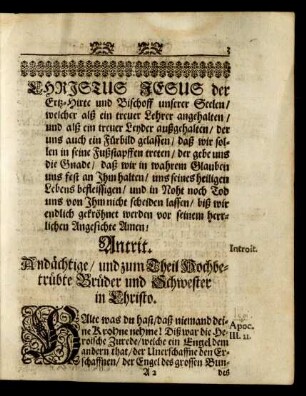 3
CHRISTUS JESUS der
Ertz-Hirte und Bischoff unserer Seelen/
welcher alß ein treuer Lehrer angehalten/
und alß ein treuer Leyder außgehalten/ der
uns auch ein Fürbild gelassen/ daß wir sol-
len in seine Fußstapffen tretten/ der gebe uns
die Gnade/ daß wir in wahrem Glauben
uns fest an Ihm halten/ uns seines heiligen
Lebens befleissigen/ und in Noht noch Tod
uns von Ihm nicht scheiden lassen/ biß wir
endlich gekröhnet werden vor seinem herr-
lichen Angesichte Amen!
Antrit.
Introit.
Andächtige/ und zum Theil Hochbe-
trübte Brüder und Schwester
in Christo.
HAlte was du hast/ daß niemand dei-
ne Krohne nehme! Diß war die He-
roische Zurede/ welche ein Engel dem
andern that/ der Unerschaffne den Er-
schaffnen/ der Engel des grossen Bun-
Apoc.
III. 11.
A 2
des